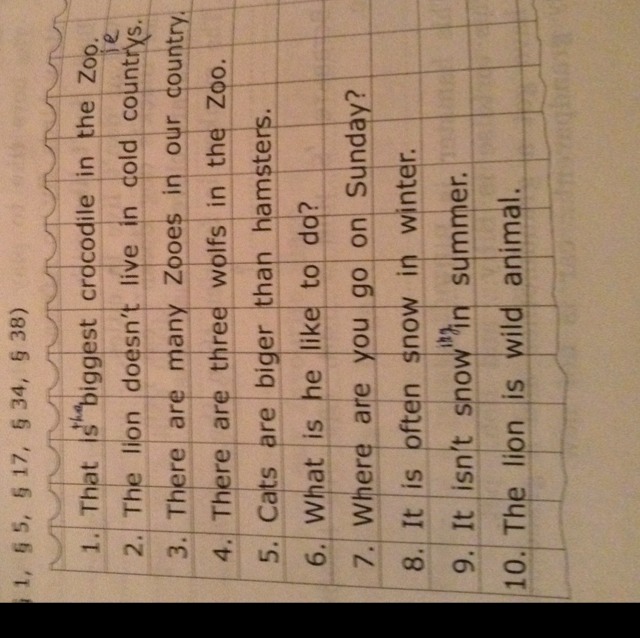 § 1, § 5, § 17, § 34, § 38)
1. That is the biggest crocodile in the Zoo.
2. The lion doesn't live in cold countrys. ie
3. There are many Zooes in our country.
4. There are three wolfs in the Zoo.
5. Cats are biger than hamsters.
6. What is he like to do?
7. Where are you go on Sunday?
8. It is often snow in winter.
9. It isn't snow ing in summer.
10. The lion is wild animal.